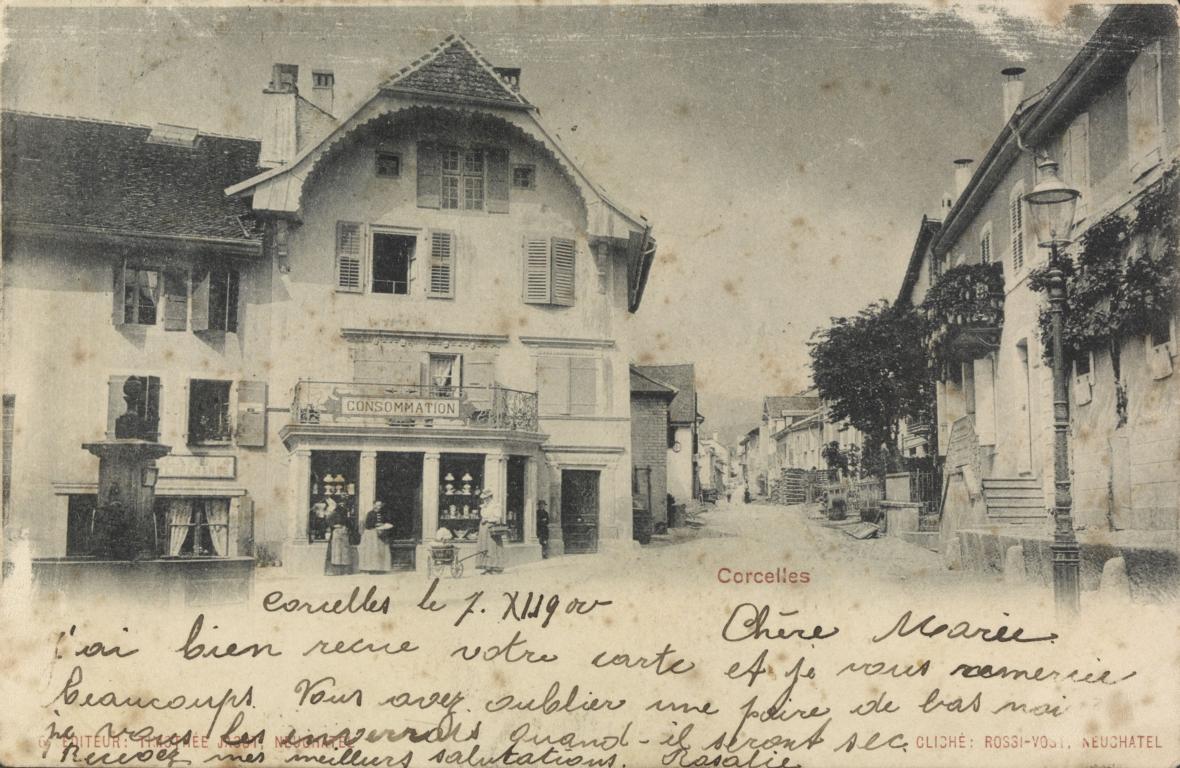 CONSOMMATION
Corcelles
Corcelles le 7. XII 1900
Chère Marie
j'ai bien recue votre carte et je vous remercie
beaucoups. Vous avez oublier une paire de bas noi
je vous les enverrais quand-il seront sec.
Recevez mes meilleurs salutations. Rosalie
EDITEUR: TIMOTHÉE JACOT, NEUCHATEL
CLICHÉ: ROSSI-VOGT, NEUCHATEL